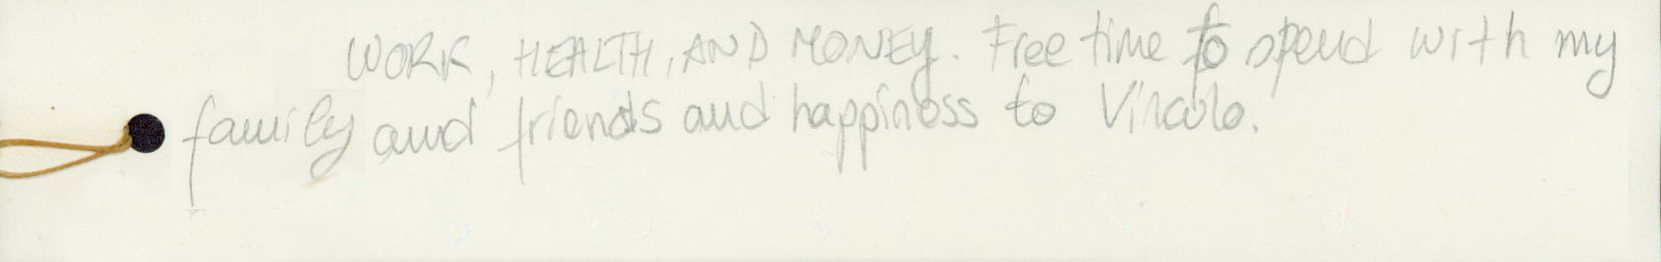 WORK, HEALTH, AND MONEY. Free time to spend with my
family and friends and happiness to